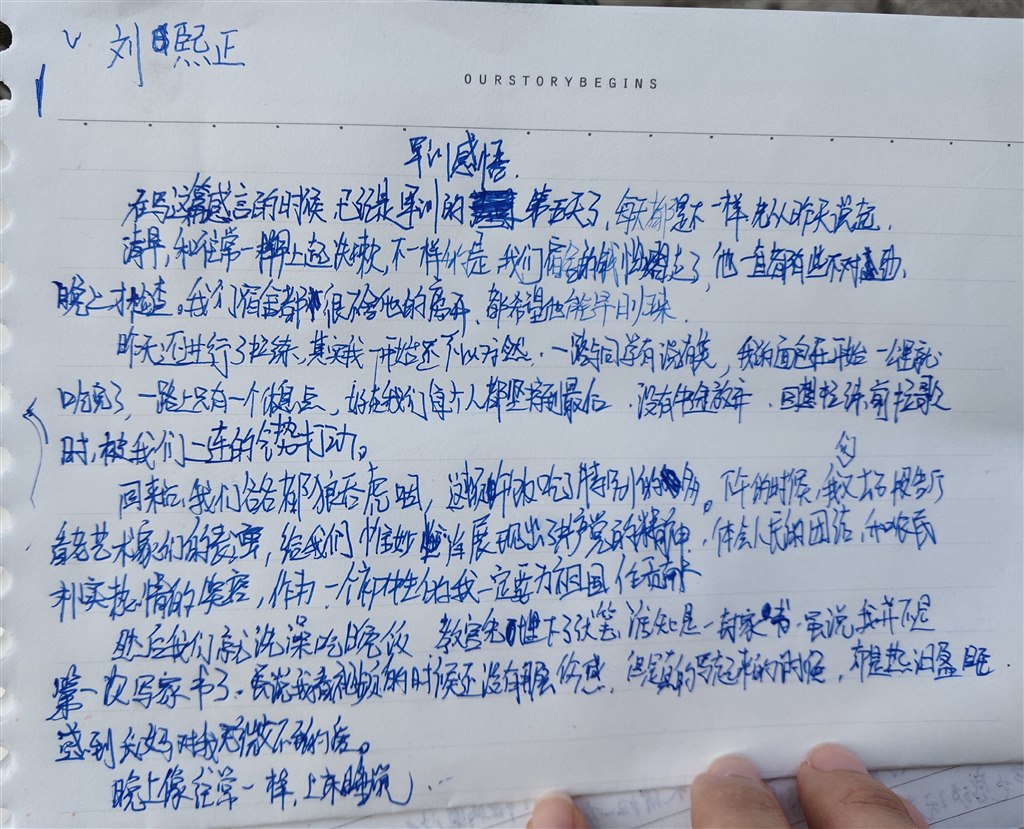 刘熙正
OURSTORYBEGINS
军训感悟
在写这篇感言的时候已经是军训的第五天了,每天都是不一样先从昨天说起.
清早,和往常一样早上起洗漱,不一样的是我们宿舍的走了,他一直都有些不对劲,
晚上才检查。我们宿舍都很不舍他的离开,都希望他能早日归来.
昨天还进行了拉练,其实我一开始还不以为然.一路与同学有说有笑,我的面包在开始一会就
吃完了,一路上只有一个休息点,好在我们每个人都坚持到最后.没有中途放弃.回想拉练前拉歌
时,被我们一连的气势打动。
回来后,我们各各都狼吞虎咽,这顿中饭吃了特别的多。下午的时候,我们又去了报告厅
看老艺术家们的表演,给我们惟妙惟肖展现出了共产党的精神,体会人民的团结,和农民
朴实热情的笑容,作为一个的我一定要为祖国作贡献
然后我们就去洗澡吃晚饭.教官先埋下了伏笔,谁知是一封家书.虽说我并不是
第一次写家书了.虽说我看视频的时候还没有伤感,但是真的写起来的时候,有是热泪盈眶
感到父妈对我无微不至的爱。
晚上像往常一样,上床睡觉